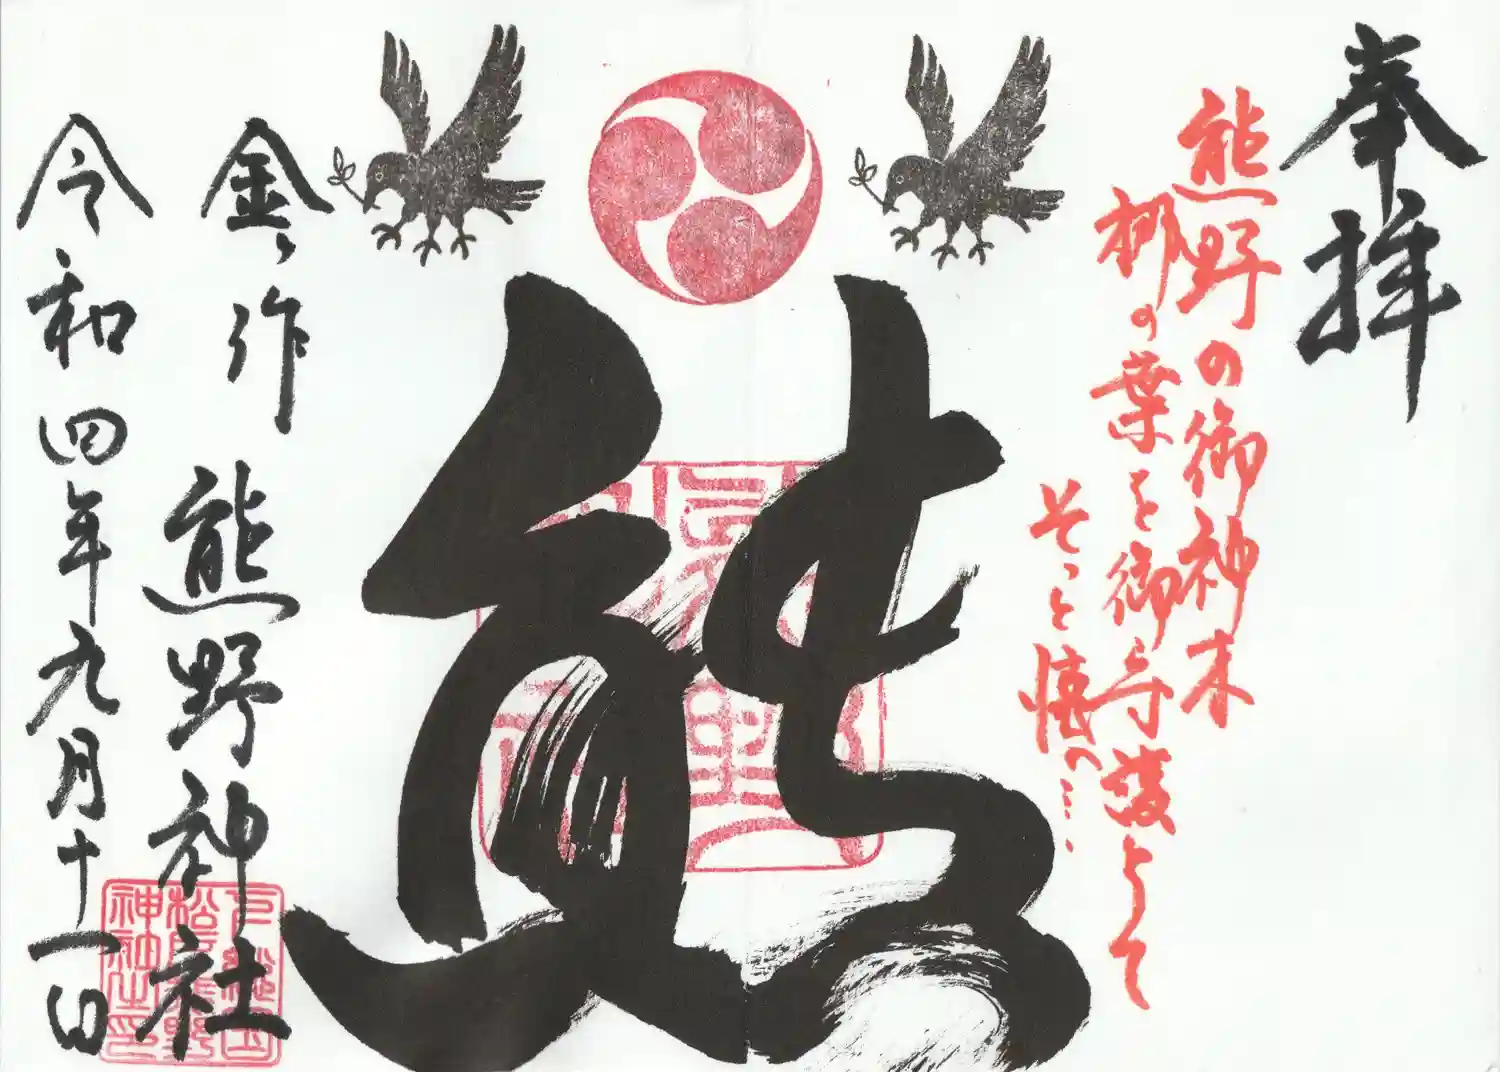 奉拝
熊野の御神木
梛の葉を御守護として
そっと懐へ…
熊
金ヶ作 熊野神社
令和四年九月十一日